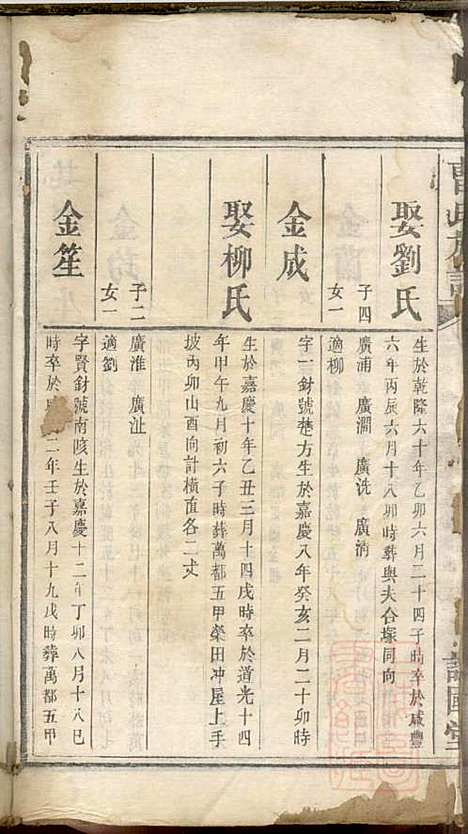 曹氏族譜
譜國堂
娶劉氏
子四
女一
生於乾隆六十年乙卯六月二十四子時卒於咸豐
六年丙辰六月十八卯時葬與夫合塚同向
廣浦 廣澗 廣洗 廣濟
適柳
金成
字一封號楚方生於嘉慶八年癸亥二月二十卯時
娶柳氏
生於嘉慶十年乙丑三月十四戌時卒於道光十四
年甲午九月初六子時葬萬都五甲榮田冲屋上手
坡內卯山酉向計橫直各二丈
子二
女一
廣淮 廣沚
適劉
金笙
字賢封號南陔生於嘉慶十二年丁卯八月十八巳
時卒於二年壬子八月十九戌時葬萬都五甲